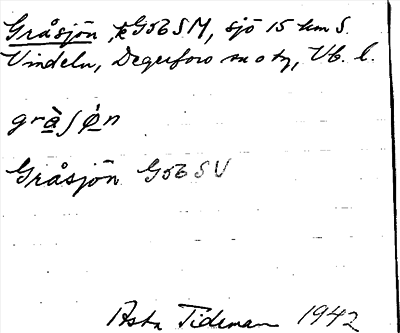 Gråsjön, k G56 SM, sjö 15 km S.
Vindeln, Degerfors sn o ty, Vb. l.
gràʃø̀n
Gråsjön G56 SV
Asta Tideman 1942